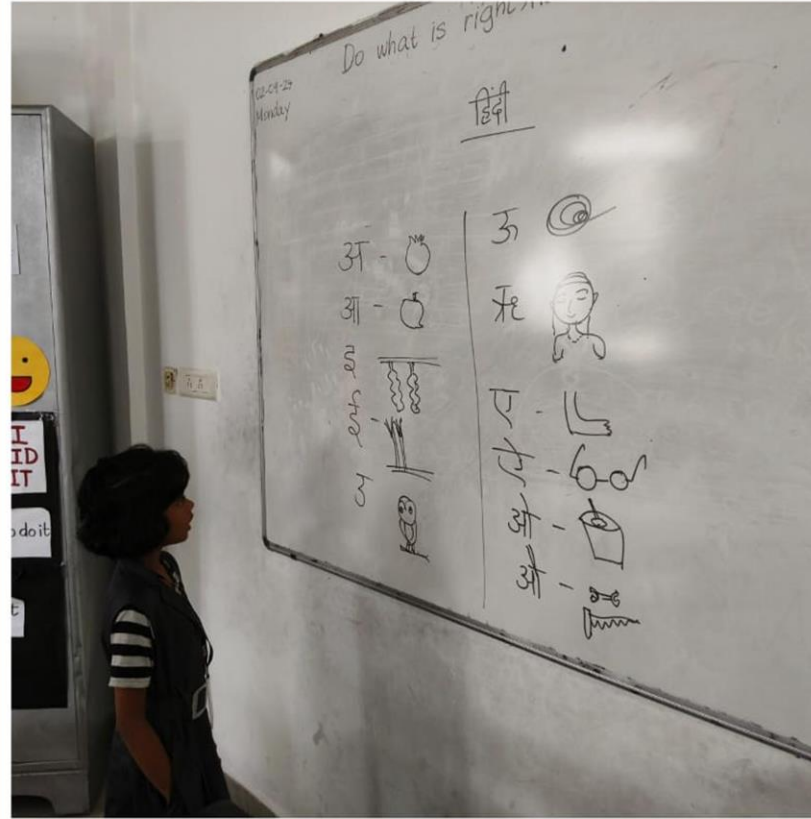 Do what is right
02-09-24
Monday
हिंदी
अ -
आ -
इ
ई -
उ
ऊ
ऋ
ए -
ऐ -
ओ -
औ -
I
ID
IT
o do it
t